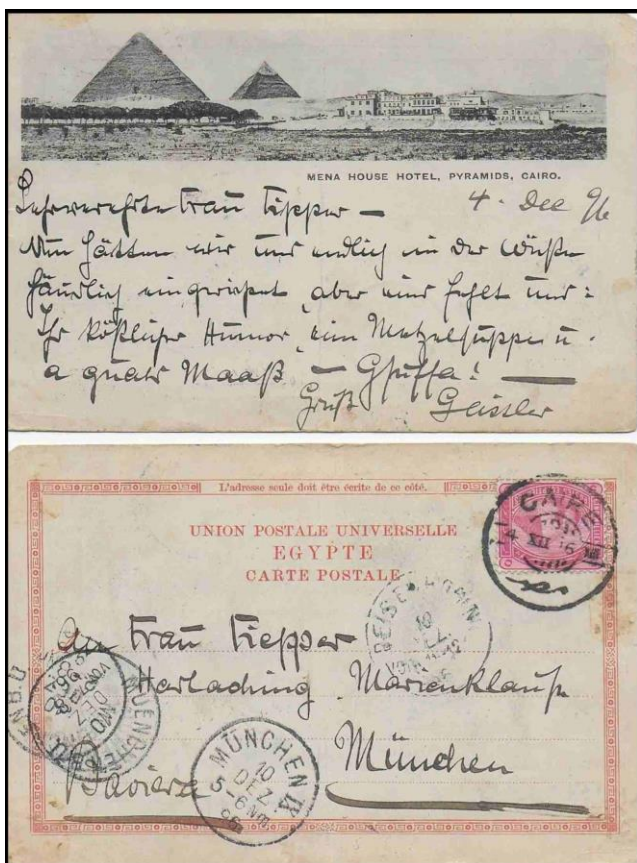 MENA HOUSE HOTEL, PYRAMIDS, CAIRO.
4. Dec 96
Sehrverehrte Frau Tiepper —
Nun hätten wir uns endlich in der Wüste
häuslich eingerichtet, aber eins fehlt uns:
Ihr köstlicher Humor, eine Metzelsuppe u.
a guate Maaß — Gsuffa! —
Gruß Geissler
L'adresse seule doit être écrite de ce côté.
UNION POSTALE UNIVERSELLE
EGYPTE
CARTE POSTALE
CAIRE
4 XII 96
An Frau Tiepper
Harlaching Marienklause
München
Bavière
MUENCHEN
MÜNCHEN IX
10
DEZ
5-6 Nm
96